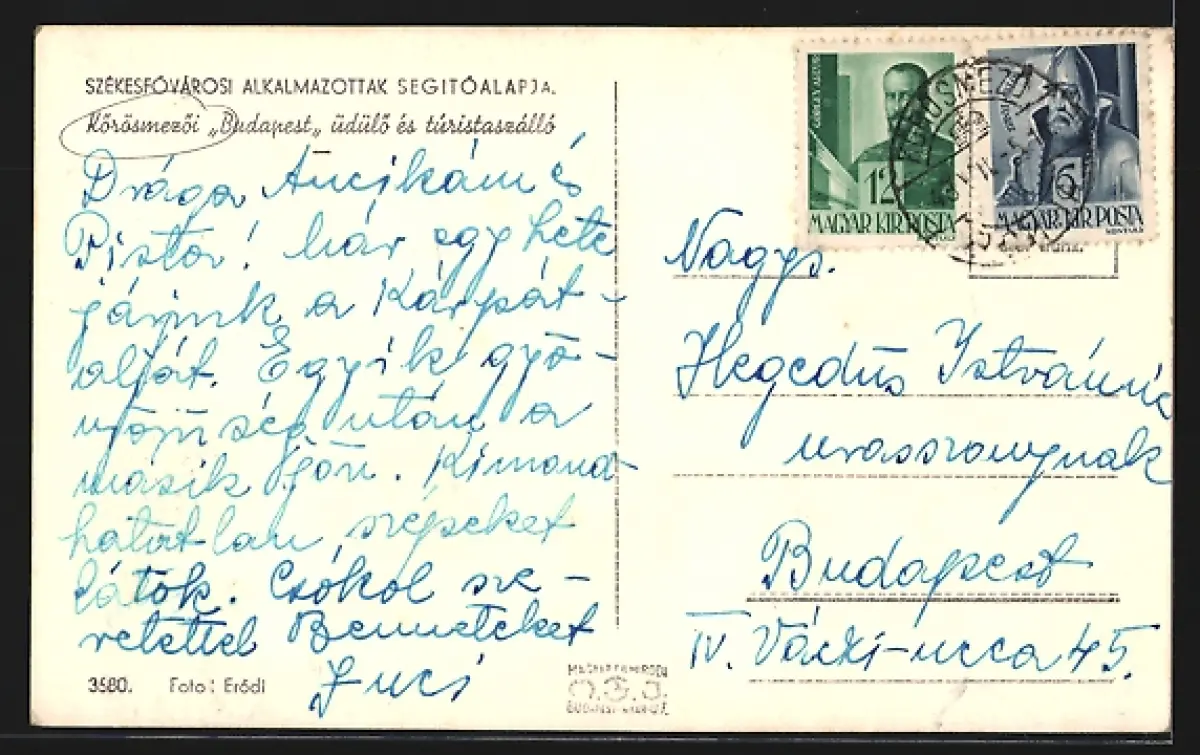 SZÉKESFŐVÁROSI ALKALMAZOTTAK SEGITŐALAPJA.
Kőrösmezői „Budapest„ üdülő és túristaszálló
Drága Aucikám és
Pistor! már egy hete
járjuk a Kárpát-
alját. Egyik gyö-
nyörüség után a
másik jön. Kimond-
hatatlan szépeket
látok. Csókol sze-
retettel Benneteket
Juci
3580. Foto: Erődi
12
MAGYAR KIR. POSTA
GÖRGEY ARTUR
6
MAGYAR KIR. POSTA
KŐRÖSMEZŐ
Nagys.
Hegedüs Istvánné
urasszonynak
Budapest
IV. Váczi-ucca 45.